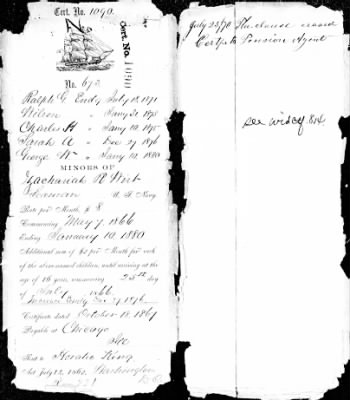 Cert. No. 1090.
Cert. No. 1090
No. 672
Ralph G. Emily July 18, 1871
Wilson " Jany 21 1873
Charles H " Jany 10, 1875
Sarah A " Dec 27 1876
George W " Jany 10, 1880
MINORS OF
Zachariah R Wirt
Seaman U. S. Navy
Rate per Month, $ 8
Commencing May 7, 1866
Ending January 10, 1880
Additional sum of $2 per Month for each
of the above-named children, until arriving at the
age of 16 years, commencing 25th day
of July 1866.
Certificate dated October 18, 1867
Payable at Chicago
Sent to Horatio King
Act July 22, 1862. Washington
D.C.
July 25/78 issued
Certfs to Pension Agent
see widcf